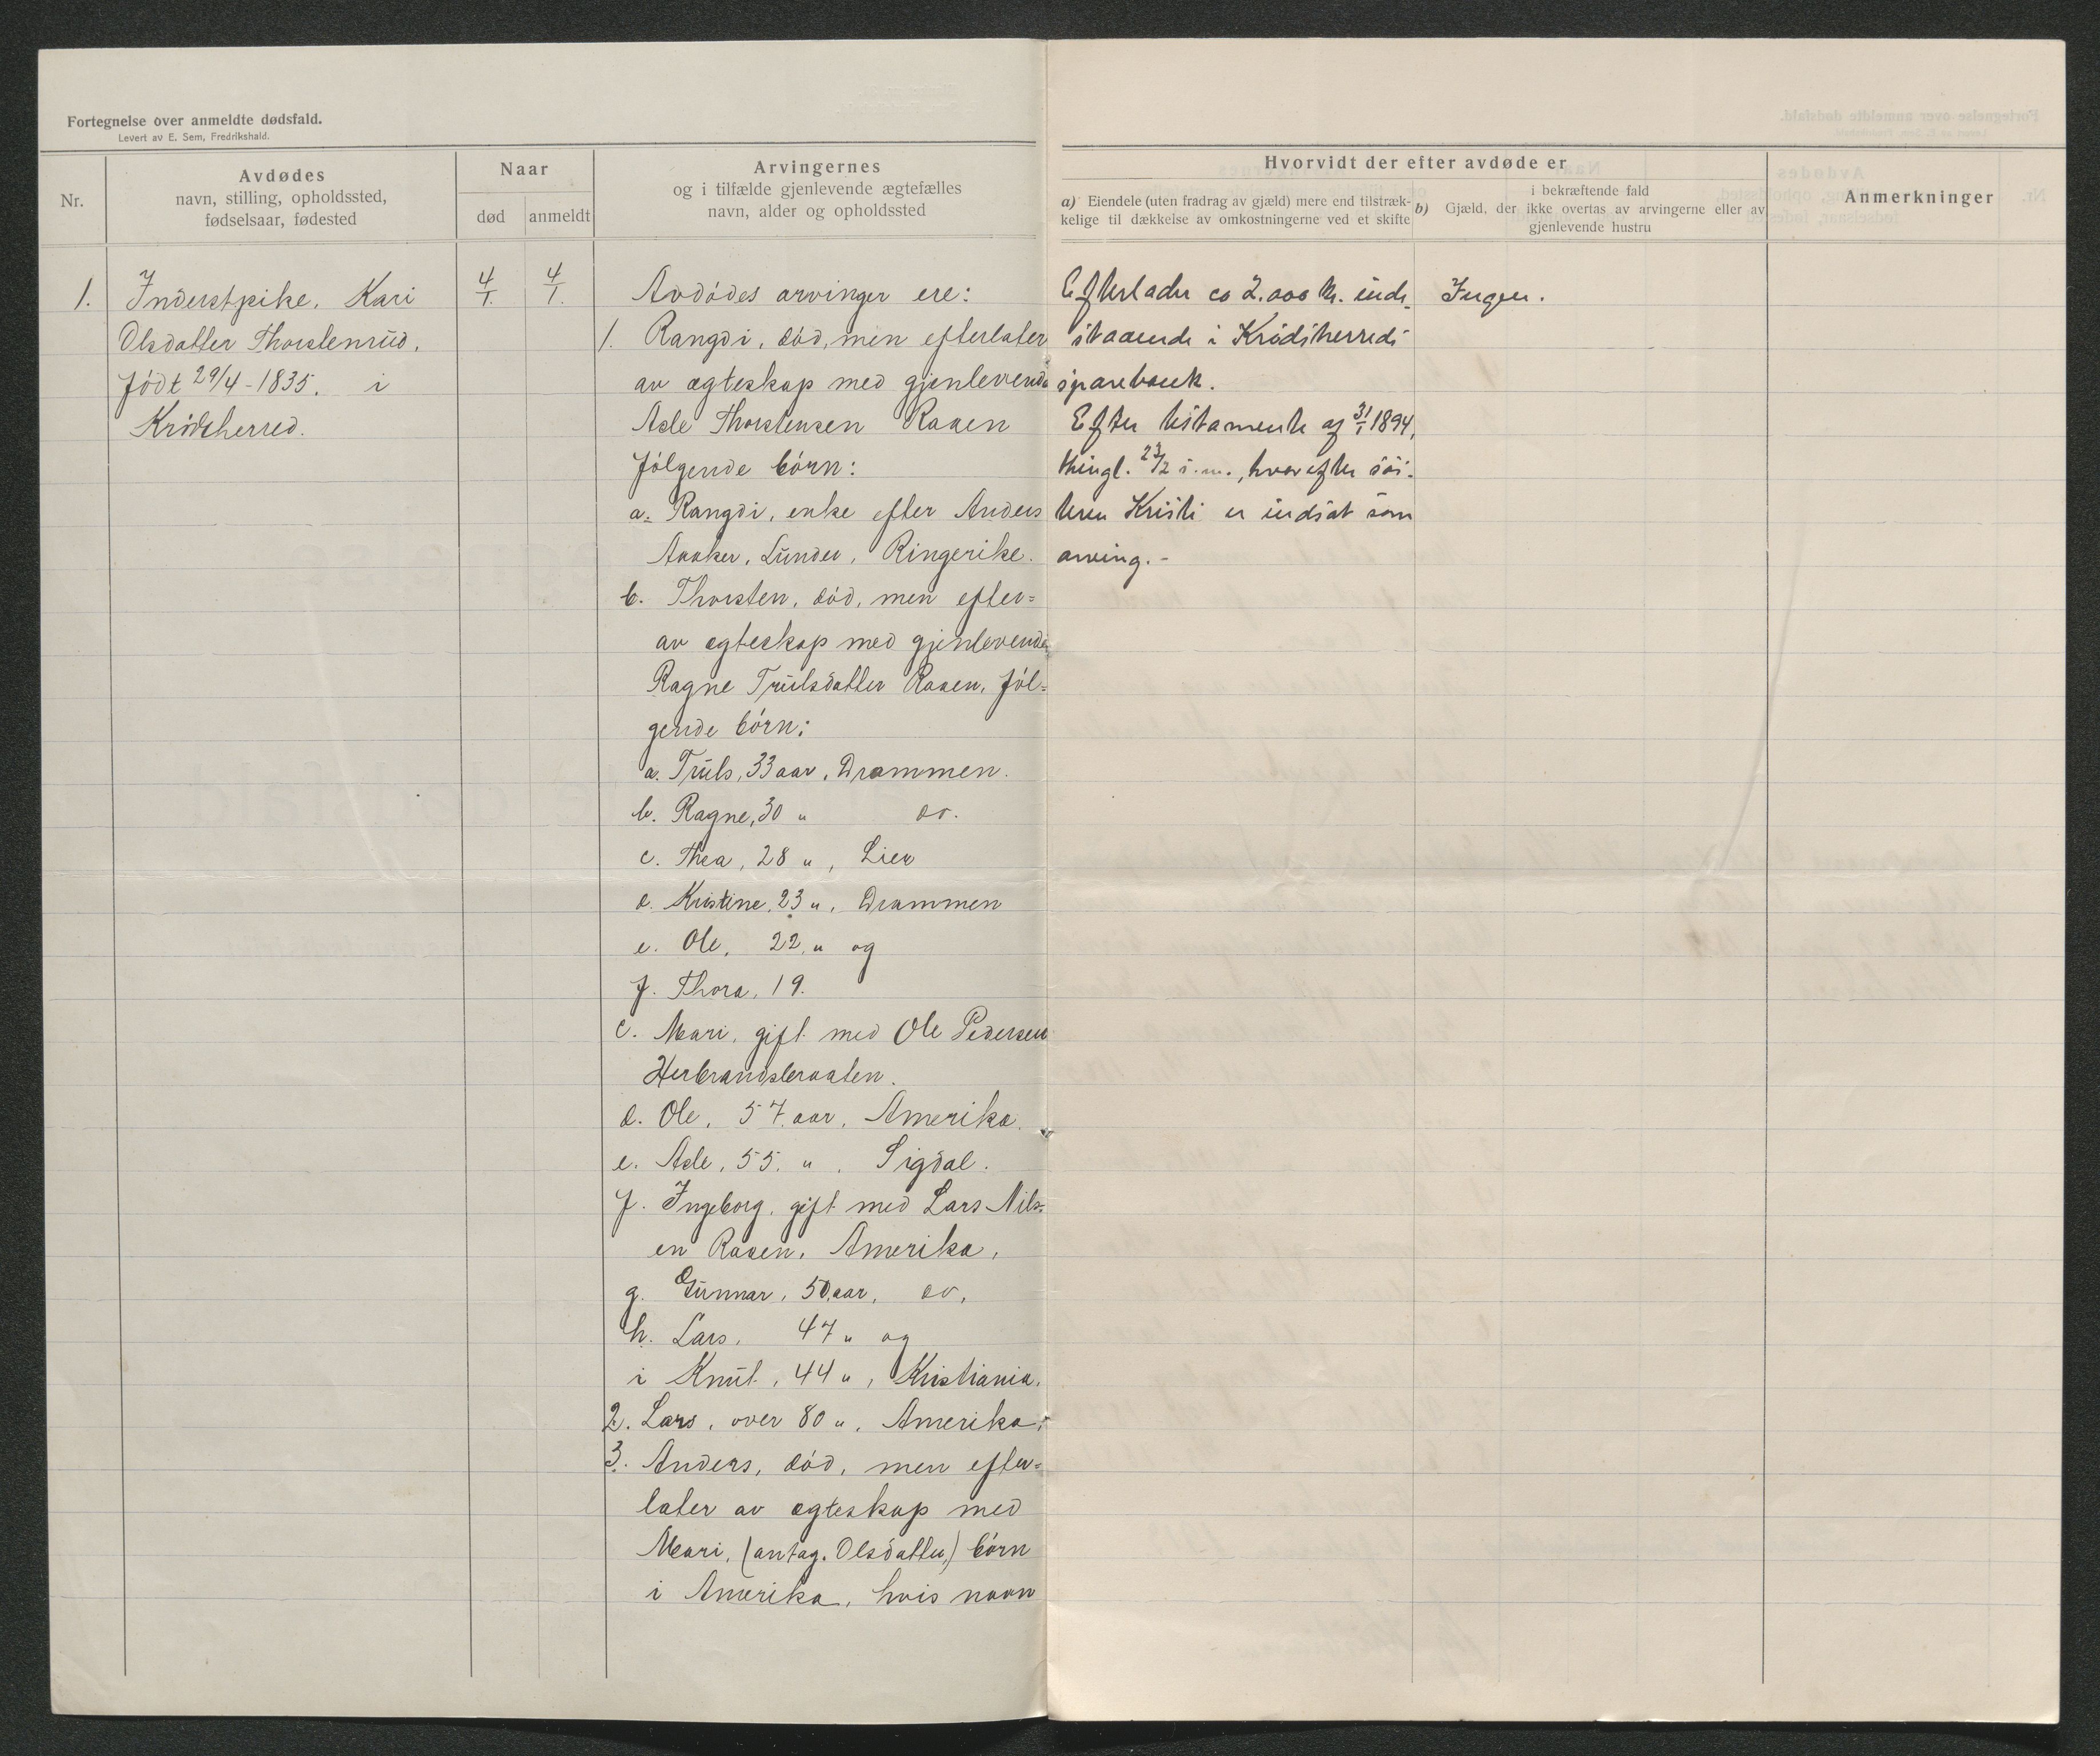 Fortegnelse over anmeldte dødsfald.
Levert av E. Sem, Fredrikshald.
Nr.
Avdødes
navn, stilling, opholdssted,
fødselsaar, fødested
Naar
død
anmeldt
Arvingernes
og i tilfælde gjenlevende ægtefælles
navn, alder og opholdssted
Hvorvidt der efter avdøde er
a) Eiendele (uten fradrag av gjæld) mere end tilstræk-
kelige til dækkelse av omkostningerne ved et skifte
i bekræftende fald
b) Gjæld, der ikke overtas av arvingerne eller av
gjenlevende hustru
Anmerkninger
1.
Inderstpike, Kari
Olsdatter Thorstenrud,
født 29/4-1835. i
Krødsherred.
4/1.
4/1.
Avdødes arvinger ere:
1. Rangdi, død, men efterlater
av ægteskap med gjenlevende
Asle Thorstensen Raaen
følgende børn:
a. Rangdi, enke efter Anders
Aaaker, Lunder, Ringerike.
b. Thorsten, død, men efter=
av egteskap med gjenlevende
Ragne Trulsdatter Raaen, føl=
gende børn:
a. Truls, 33 aar, Drammen.
b. Ragne, 30 " do.
c. Thea, 28 ", Lier
d. Kristine, 23 ", Drammen
e. Ole, 22, " og
f. Thora, 19.
c. Mari, gift med Ole Pedersen
Herbrandsbraaten.
d. Ole, 57 aar, Amerika.
e. Asle, 55. ", Sigdal.
f. Ingeborg, gift med Lars Nils=
en Raaen, Amerika,
g. Gunnar, 50 aar, do,
h. Lars, 47 " og
i Knut, 44 ", Kristiania.
2. Lars, over 80 ", Amerika.
3. Anders, død, men efter=
later av egteskap med
Mari, (antag. Olsdatter,) børn
i Amerika, hvis navn
Efterlader ca 2.000 kr. inde-
staaende i Krødsherreds
sparebank.
Efter testamente af 31/1 1894,
thingl. 23/2 s.m., hvorefter søs-
teren Kristi er indsat som
arving.-
Ingen.